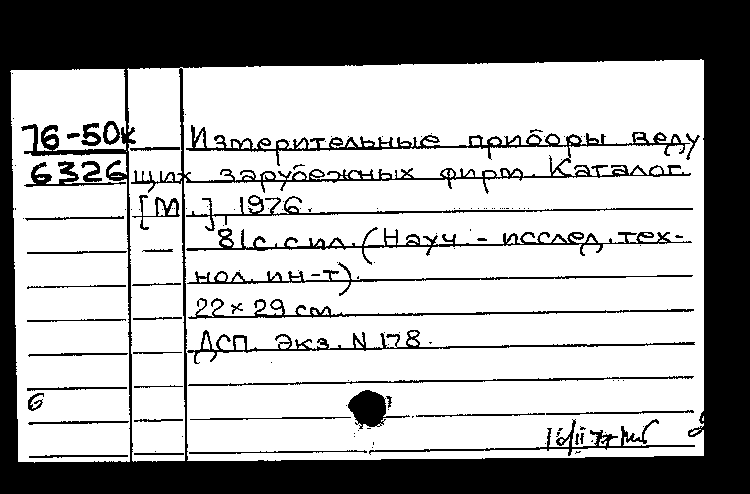 76-50к Измерительные приборы веду
6326 щих зарубежных фирм. Каталог.
[М.], 1976.
81 с. с ил. (Науч.-исслед. тех-
нол. ин-т).
22 × 29 см.
ДСП. Экз. N 178.
6
16/II 77